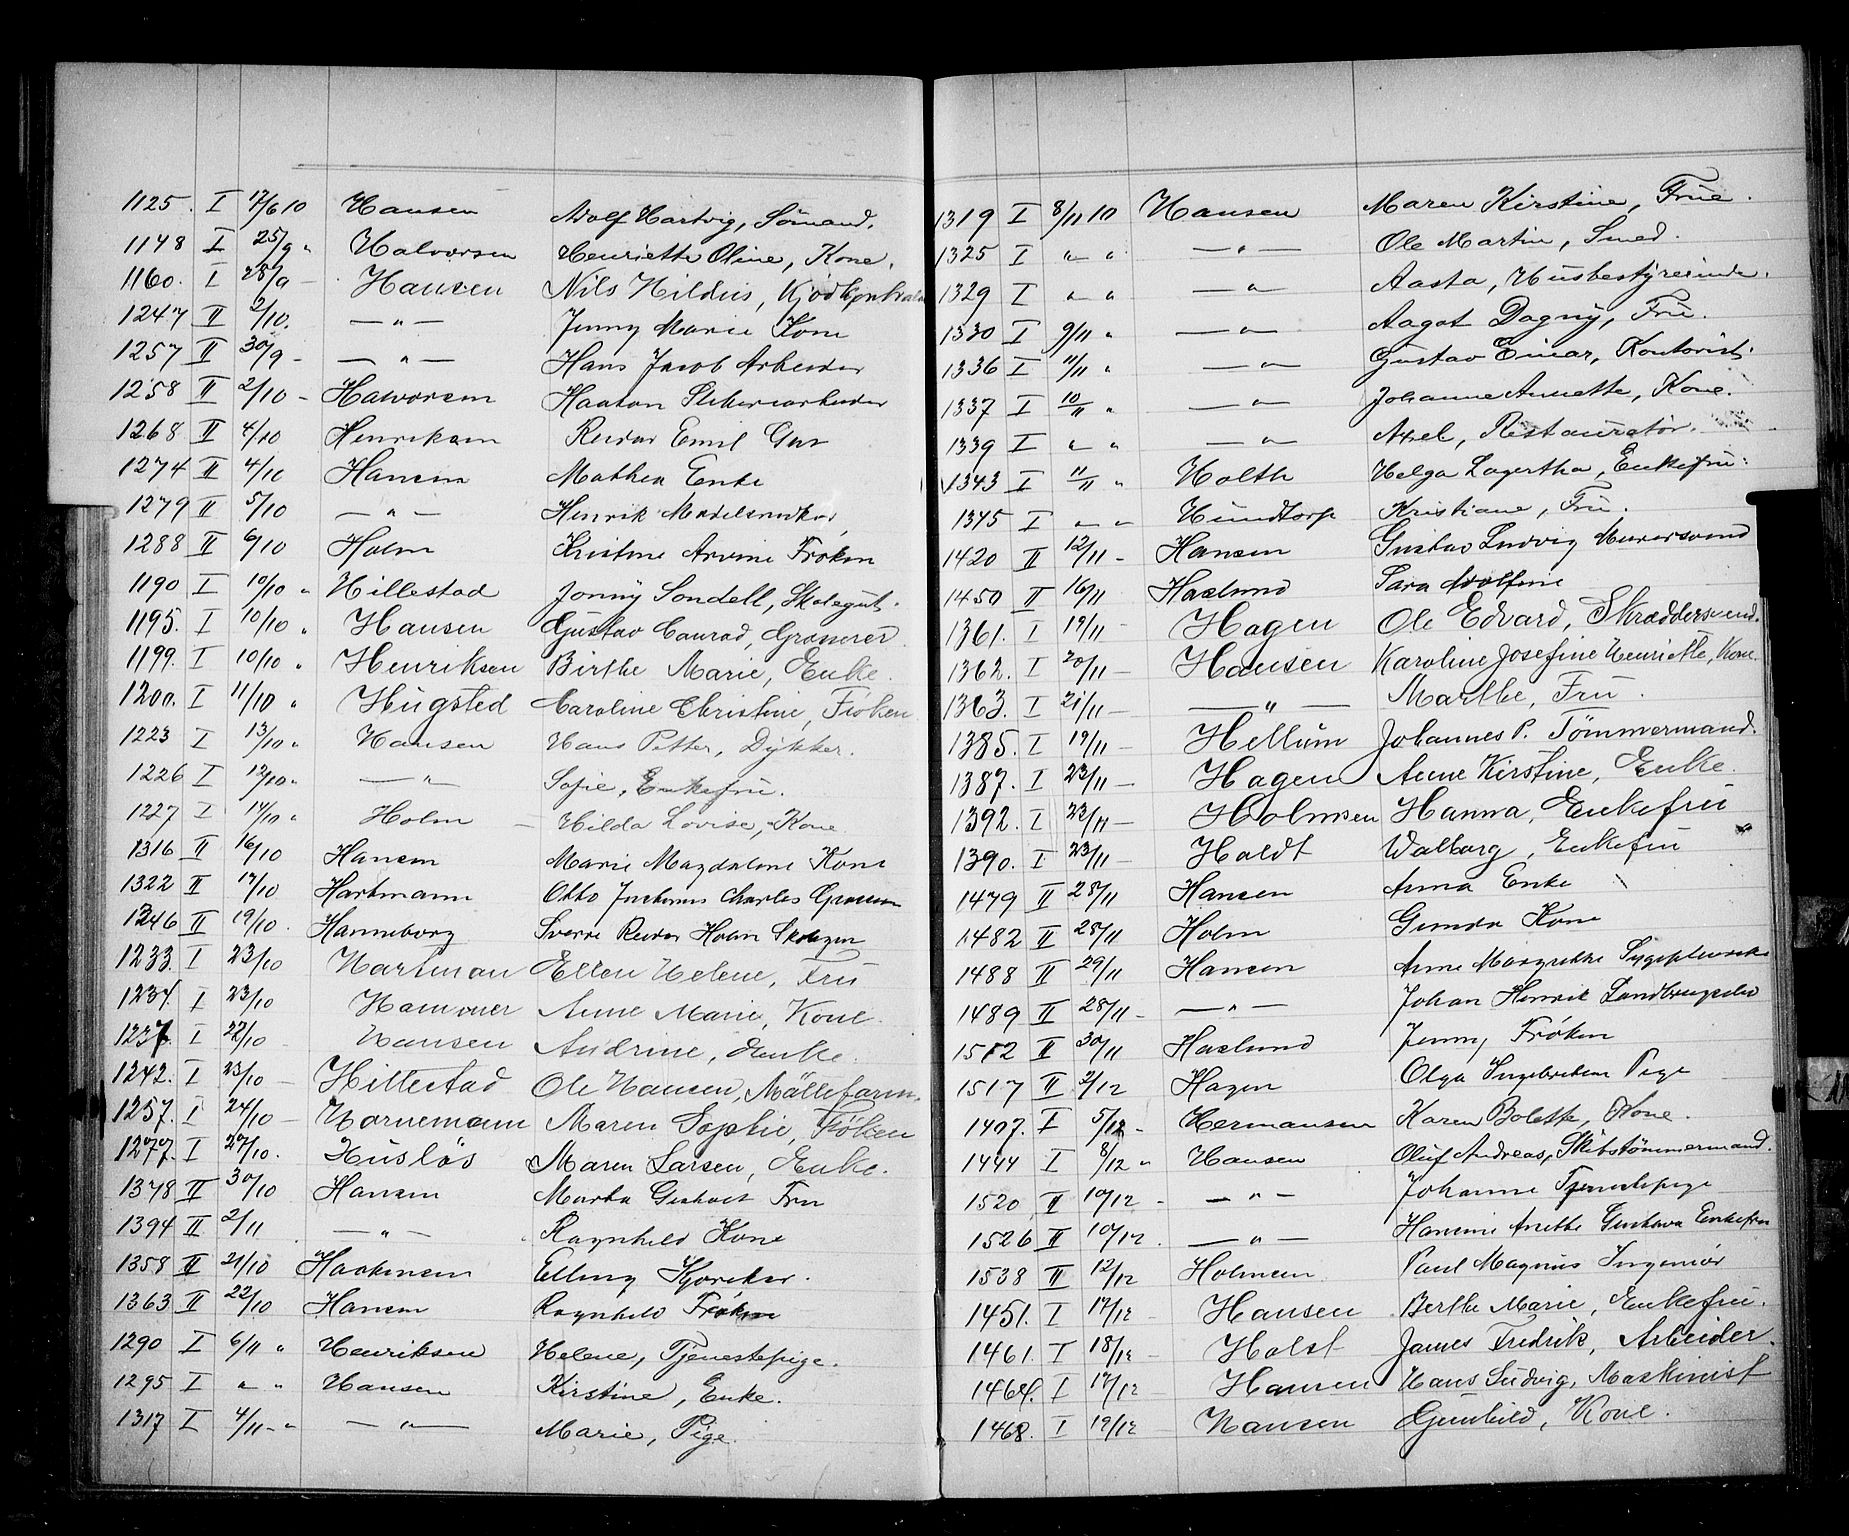 1125. I 17/6 10 Hansen Adolf Hartvig, Sømand.
1148 I 25/9 " Halvorsen Henriette Oline, Kone.
1160. I 28/9 - Hansen Nils Hildius,
1247 II 2/10. — " — Jenny Marie Kone
1257 II 30/9 - — " — Hans Jacob Arbeider
1258 II 2/10 - Halvorsen Haakon
1268 II 4/10 Henriksen Reidar Emil Gut
1274 II 4/10 Hansen Mathea Enke
1279 II 5/10 — " — Henrik
1288 II 6/10 Holm Kristine Arvine Frøken
1190 I 10/10 " Hillestad Jonny Sondell, Skolegut.
1195. I 10/10 " Hansen Gustav Conrad, Grosserer
1199. I 10/10 " Henriksen Birthe Marie, Enke.
1200. I 11/10 " Hugsted Caroline Christine, Frøken
1223 I 13/10 " Hansen Hans Petter, Dykker.
1226 I 12/10 " — " Sofie, Enkefru.
1227 I 14/10 " Holm — Hilda Lovise, Kone
1316 II 16/10 Hansen Marie Magdalene Kone
1322 II 17/10 Hartmann Otto Charles
1246 II 19/10. Hanneborg Sverre Reidar Holm
1233. I 23/10 Hartman Ellen Helene, Fru
1234. I 23/10 Hammer Anne Marie, Kone.
I 22/10 Hansen Andrine, Enke.
1242. I 23/10 — Hillestad Ole Hansen,
1257. I 24/10 — Hornemann Maren Sophie, Frøken
1277. I 27/10. Husløs Maren Larsen, Enke.
1378 II 30/10 Hansen Marta Fru
1394 II 2/11 — " — Ragnhild Kone
1358 II 21/10 Haakensen Elling
1363 II 22/10 Hansen Ragnhild Frøken
1290 I 6/11 " Henriksen Helene, Tjenestepige.
1295 I " " Hansen Kirstine, Enke.
1317 I 4/11 - " — " — Marie, Pige.
1319 I 8/11 10 Hansen Maren Kirstine, Frue.
1325 I " " — " — Ole Martin, Smed.
1329 I " " — " Aasta, Husbestyrerinde.
1330 I 9/11 " — " Aagot Dagny, Fru.
1336 I 11/11 " — " Gustav Einar, Kontorist.
1337 I 10/11 " — " Johanne Annette, Kone.
1339 I " " — " Axel, Restauratør.
1343 I 11/11 " Holth Helga Lagertha, Enkefru.
1345 I " " Hundtorp Kristiane, Fru.
1420 II 12/11 - Hansen Gustav Ludvig Murersvend
1450 II 16/11 Haslund Sara Adolfine
1361. I 19/11 - Hagen Ole Edvard, Skræddersvend.
1362. I 20/11 — Hansen Karoline Josefine Henriette, Kone.
1363. I 21/11 — — " — Marthe, Fru.
1385. I 19/11 — Hellum Johannes P. Tømmermand.
1387. I 23/11 — Hagen Anne Kirstine, Enke.
1392. I 23/11 — Holmsen Hanna, Enkefru
1390. I 23/11 — Holdt Walborg, Enkefru
1479 II 28/11 Hansen Anna Enke
1482 II 28/11 Holm Gunda Kone
1488 II 29/11 Hansen Anne Margrethe
1489 II 28/11 - — " — Johan Henrik
1512 II 30/11 Haslund Jenny Frøken
1517 II 2/12 Hagen Olga Ingebretsen Pige
1407. I 5/12 - Hermansen Karen Bolette, Kone.
1444 I 8/12 " Hansen Oluf Andreas, Skibstømmermand.
1520 II 10/12 - — " — Johanne Tjenestepige
1526 II 10/12. — " — Hansine Anette Gustava Enkefru
1538 II 12/12 Holmsen Paul Magnus Ingeniør
1451. I 17/12 Hansen Berthe Marie, Enkefru.
1461. I 18/12 — Holst James Fredrik, Arbeider.
1464. I 17/12 Hansen Hans Ludvig, Maskinist
1468. I 19/12 — Hansen Gunhild, Kone.